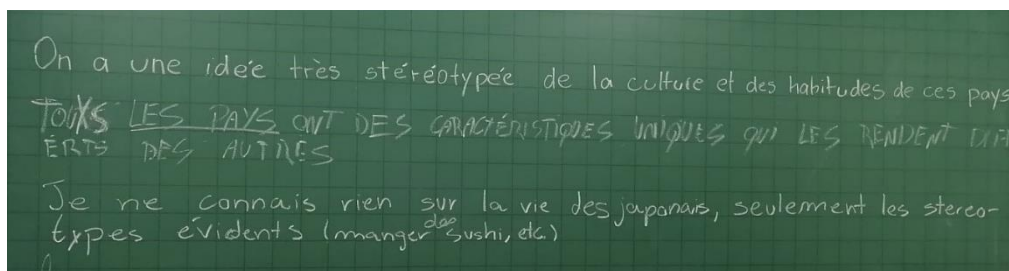 On a une idée très stéréotypée de la culture et des habitudes de ces pays
LES PAYS ONT DES CARACTÉRISTIQUES UNIQUES QUI LES RENDENT
DES AUTRES
Je ne connais rien sur la vie des japonais, seulement les stereo-
types évidents (manger des sushi, etc.)